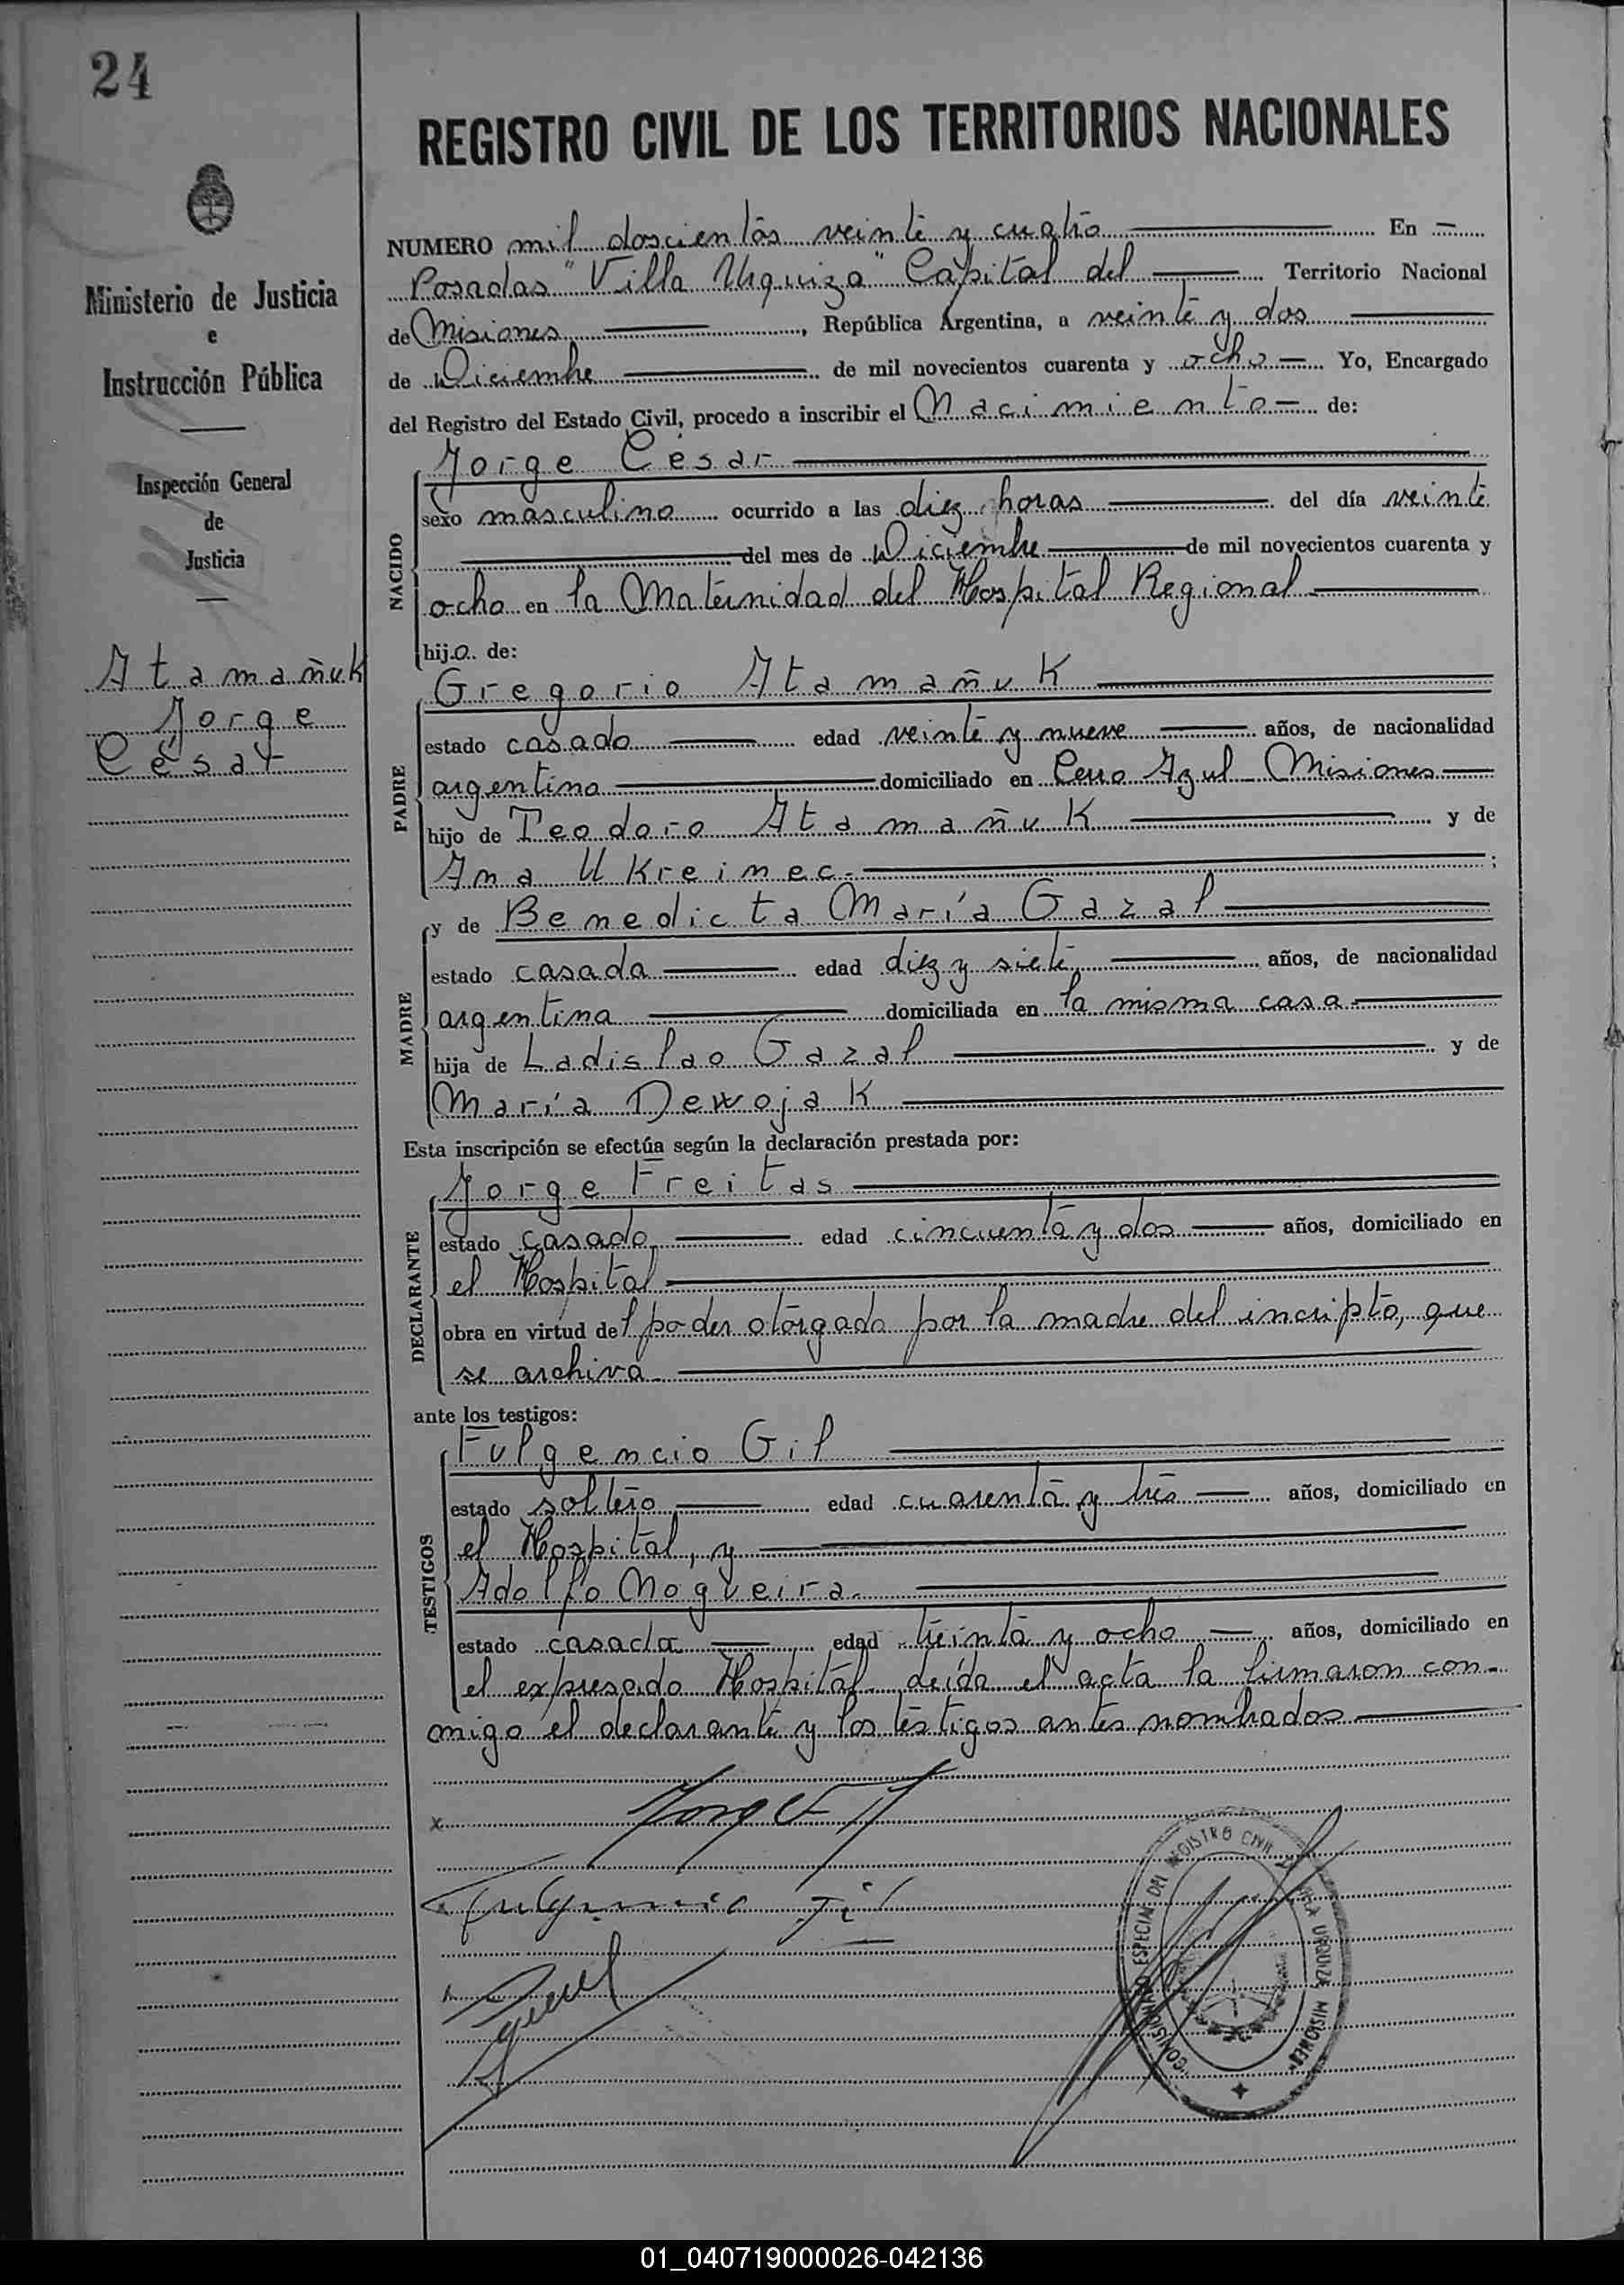 24
REGISTRO CIVIL DE LOS TERRITORIOS NACIONALES
Ministerio de Justicia
e
Instrucción Pública
Inspección General
de
Justicia
Atamañuk
Jorge
César
NUMERO mil doscientos veinte y cuatro En
Posadas "Villa Urquiza" Capital del Territorio Nacional
de Misiones, República Argentina, a veinte y dos
de Diciembre de mil novecientos cuarenta y ocho Yo, Encargado
del Registro del Estado Civil, procedo a inscribir el Nacimiento de:
Jorge César
NACIDO
sexo masculino ocurrido a las diez horas del día veinte
del mes de Diciembre de mil novecientos cuarenta y
ocho en la Maternidad del Hospital Regional
hijo de:
Gregorio Atamañuk
PADRE
estado casado edad veinte y nueve años, de nacionalidad
argentina domiciliado en Cerro Azul Misiones
hijo de Teodoro Atamañuk y de
Ana Ukreinec ;
y de Benedicta María Gazal
MADRE
estado casada edad diez y siete años, de nacionalidad
argentina domiciliada en la misma casa
hija de Ladislao Gazal y de
María Dewojak
Esta inscripción se efectúa según la declaración prestada por:
Jorge Freitas
DECLARANTE
estado casado edad cincuenta y dos años, domiciliado en
el Hospital
obra en virtud del poder otorgado por la madre del incripto, que
se archiva
ante los testigos:
Fulgencio Gil
TESTIGOS
estado soltero edad cuarenta y tres años, domiciliado en
el Hospital, y
Adolfo Nogueira
estado casada edad treinta y ocho años, domiciliado en
el expresado Hospital. Leída el acta la firmaron con-
migo el declarante y los testigos antes nombrados
x Jorge F
Fulgencio Gil
COMISIONADO ESPECIAL DEL REGISTRO CIVIL VILLA URQUIZA MISIONES
01_040719000026-042136